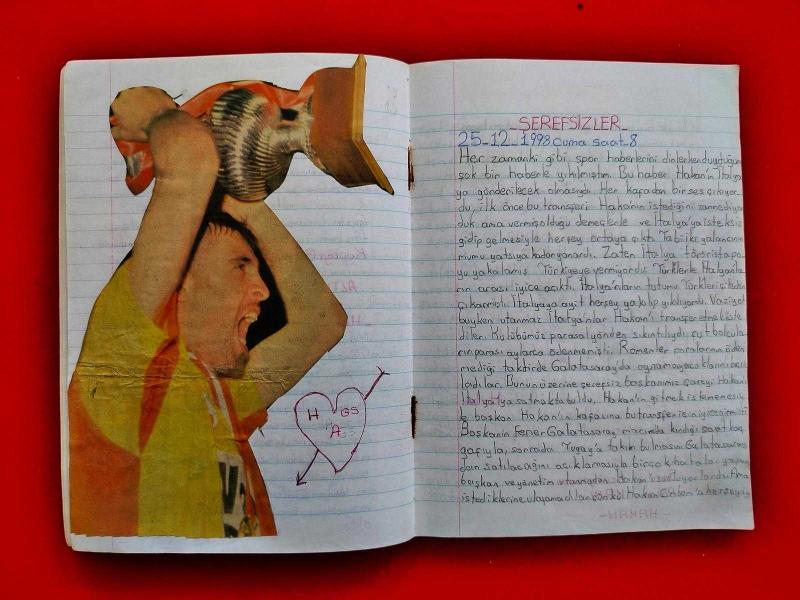 H GS
A
_ŞEREFSİZLER_
25_12_1998 Cuma saat_8
Her zamanki gibi, spor haberlerini dinlerken duyduğum
şok bir haberle yıkılmıştım. Bu haber Hakan'ın İtalya
ya gönderilecek olmasıydı. Her kafadan bir ses çıkıyor
du, ilk önce bu transferi Hakan'ın istediğini zannediyo
duk ama vermiş olduğu demeçlerle ve İtalya'ya isteksiz
gidip gelmesiyle herşey ortaya çıktı. Tabiiki yalancının
mumu yatsıya kadar yanardı. Zaten İtalya törörist apo
yu yakalamış Türkiyeye vermiyordu. Türklerle İtalyanla
rın arası iyice açıktı. İtalyanların tutumu Türkleri çileden
çıkarmıştı. İtalyaya ayit herşey yakılıp yıkılıyordu. Vaziyet
buyken utanmaz İtalyanlar Hakan'ı transfer etmek iste
diler. Kulübümüz parasal yönden sıkıntılıydı, futbolcula
rın parası aylarca ödenmemişti. Romenler paralarının öden
mediği taktirde Galatasaray'da oynamayacaklarını açık
ladılar. Bunun üzerine şerefsiz başkanımız çareyi Hakanı
İtalya'ya satmakta buldu. Hakan'ın gitmek istememesiy
le başkan Hakan'ın kafasına bu transfer için iyice girmişti
Başkanın Fener Galatasaray maçında kırdığı saat kaç
gafıyla, sonrada Tugay'a takım bulmasını Galatasaray
dan satılacağını açıklamasıyla birçok hatalar yapan
başkan ve yönetim utanmadan Hakan'ı
istediklerine ulaşamadılar çünkü Hakan Cimbom'a herşeyiy